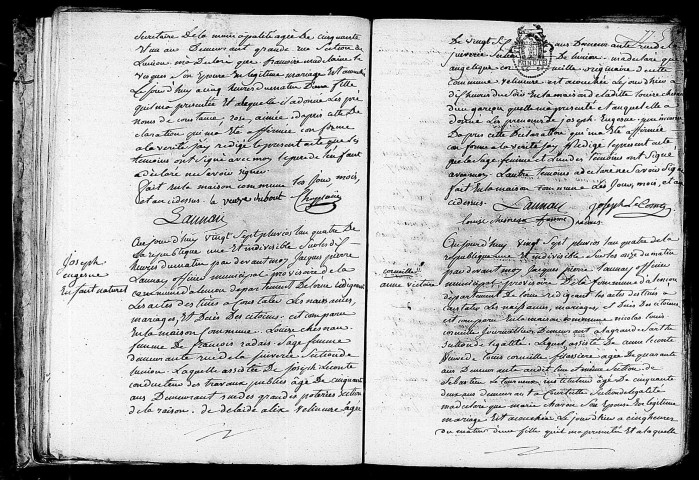 Secretaire de la municipalité agée de cinquante
un ans Demeurant grande rue Section de
Lunion ma déclaré que françoise madelaine le
vayer Son Epouse En legitime mariage Est accouchée
Le jourdhuy a cinq heures du matin Dune fille
quil ma presentée et a laquelle il a donné Les pré
noms de constance, rose, aimée. dapres cette De
claration qui ma Eté affirmée conforme
a la verité jay redigé le present acte que les
temoins ont Signé avec moy, le pere de lenfant
a Declaré ne savoir signer
fait En la maison commune Les jour, mois,
et an cidessus. le veuve
Launay
Joseph
eugesne
Enfant naturel
Aujourd'huy vingt Sept pluviose lan quatre De
la republique une et indivisible Sur les dix
heures du matin par devant moy Jacques pierre
Launay officier municipal provisoire de la
commune dalencon departement De lorne redigeant
Les actes destinés a Constater Les naissances,
mariages, et Décés Des citoiens. est comparue
En la maison Commune. Louise chesneau
femme De françois radais. Sage femme
demeurante rue de la juiverie Section de
lunion. Laquelle assistée De joseph Leconte
conducteur des travaux publics âgé De cinquante
ans Demeurant sur des grandes poteries Section
De la raison. de adelaide alix volleuse, agée
De vingt Sept ans Demeurante rue de la
juiverie Section De Lunion, ma declaré que
angelique
commune volleuse est accouchée Le jourdhuy a
dix heures du soir En la maison de la ditte Louise chesneau
dun garçon quelle ma presenté et auquel elle a
donné Les prenoms de joseph Eugesne
Dapres cette Declaration qui ma Eté affirmée
conforme a la verité jay Redigé le present acte
que la Sage femme et Lun des temoins ont Signé
avec moy. Lautre temoin a declaré ne Savoir Signer
fait En la maison commune Les jour, mois, et an
cidessus. Launay Joseph Leconte
Louise chesneau femme radais
corneille
anne victoire
Aujourd'huy vingt Sept pluviose lan quatre de la
republique une et indivisible Sur les onze du matin
par devant moy Jacques pierre Launay officier
municipal provisoire de la Commune d'alencon
departement De lorne redigeant Les actes destinés a
constater Les naissances, mariages, et Décés Des citoiens,
est comparu En la maison commune nicolas louis
corneille journaillier Demeurant a la grande Sarthe
Section de legalité Lequel assisté De anne leconte
veuve De louis corneille filassiere agée De quarante
ans Demeurante audit lieu et même Section de
Sebastien Le tourneur instituteur âgé De cinquante
deux ans demeurant a courteille Section de legalité
ma declaré que marie Son Epouse En legitime
mariage est accouchée Le jourdhuy a cinq heures
du matin dune fille quil ma presentée Et a laquelle